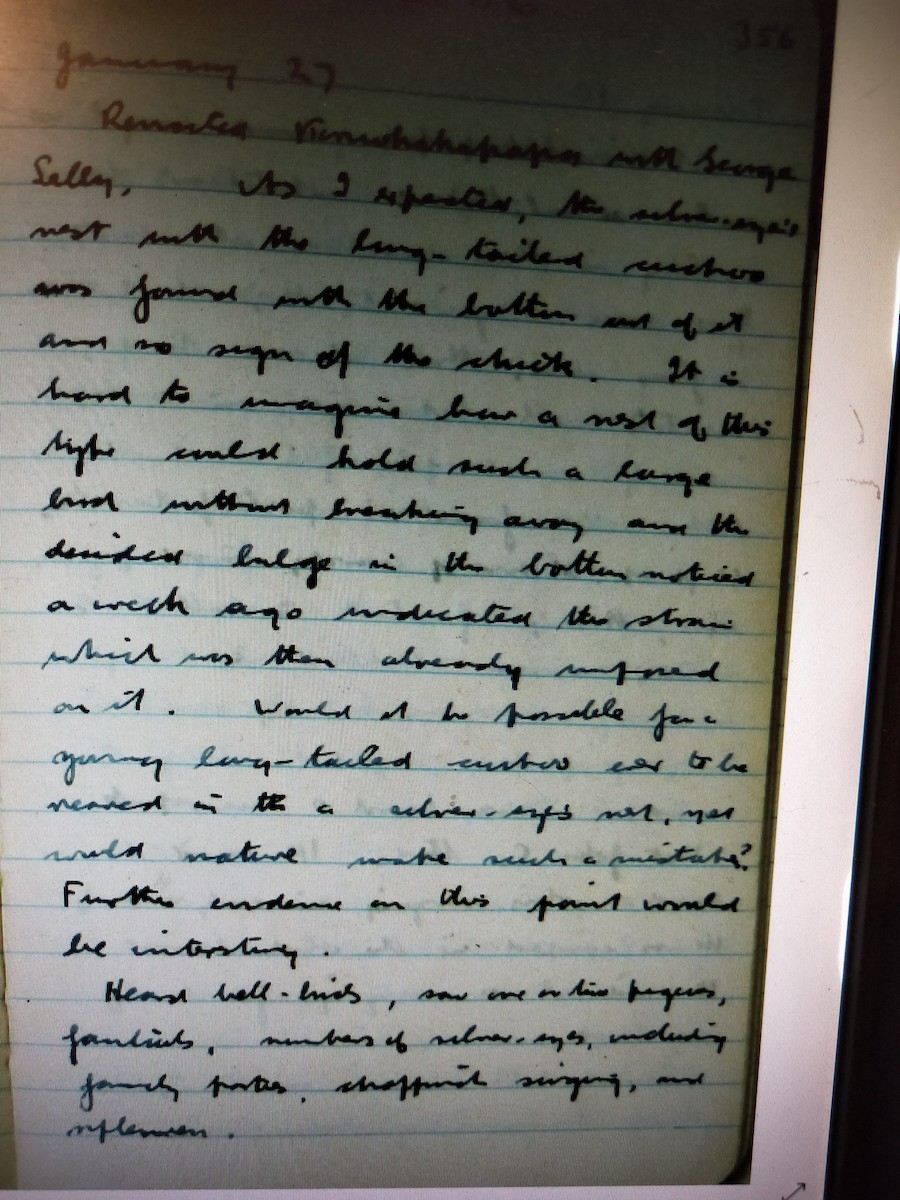 356
January 27
Revisited Tiriwhakapapa with George
Selby. As I expected, the silver-eye's
nest with the long-tailed cuckoo
was found with the bottom out of it
and no sign of the chick. It is
hard to imagine how a nest of this
type could hold such a large
bird without breaking away and the
decided bulge in the bottom noticed
a week ago indicated the strain
which was then already imposed
on it. Would it be possible for a
young long-tailed cuckoo ever to be
reared in the a silver-eye's nest, yet
would nature make such a mistake?
Further evidence on this point would
be interesting.
Heard bell-birds, saw one or two pigeons,
fantails, numbers of silver-eyes, including
family parties, chaffinch singing, and
riflemen.